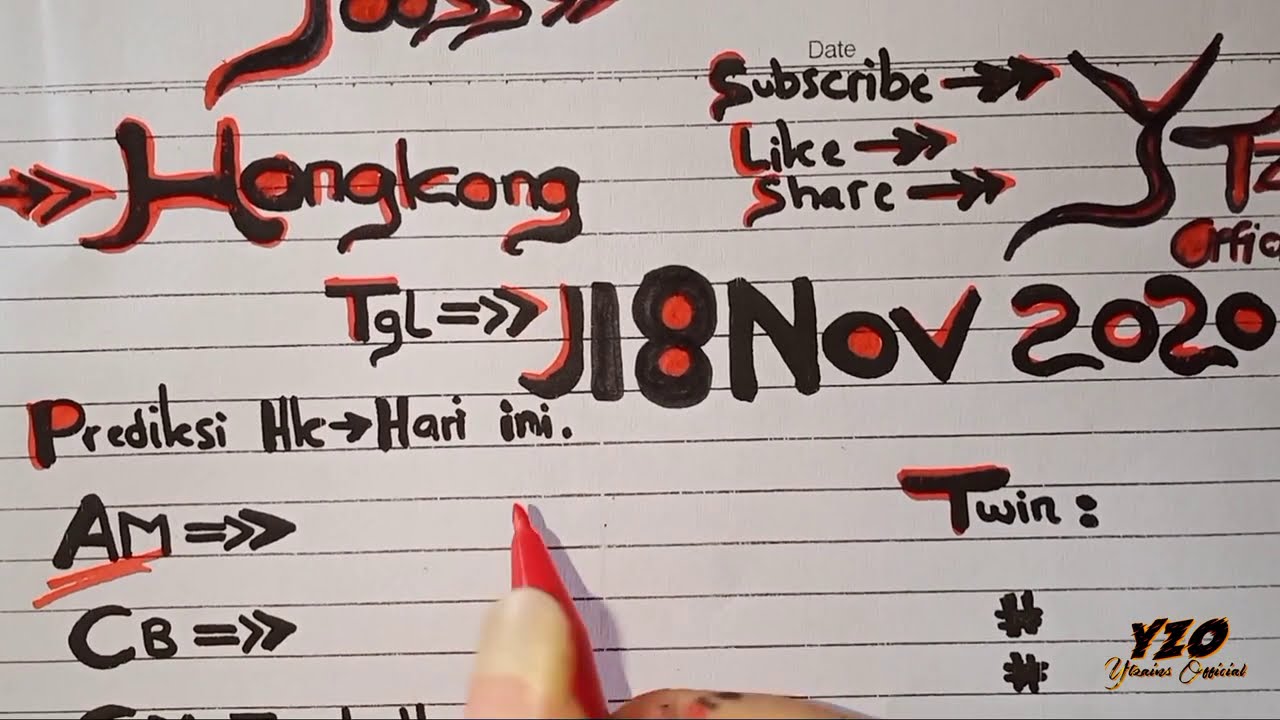 Date
Subscribe
Like
Share
Hongkong
Tgl => 18 Nov 2020
Prediksi Hk → Hari ini.
AM =>>
CB =>>
Twin :
#
#
YZO
Ytzains Official